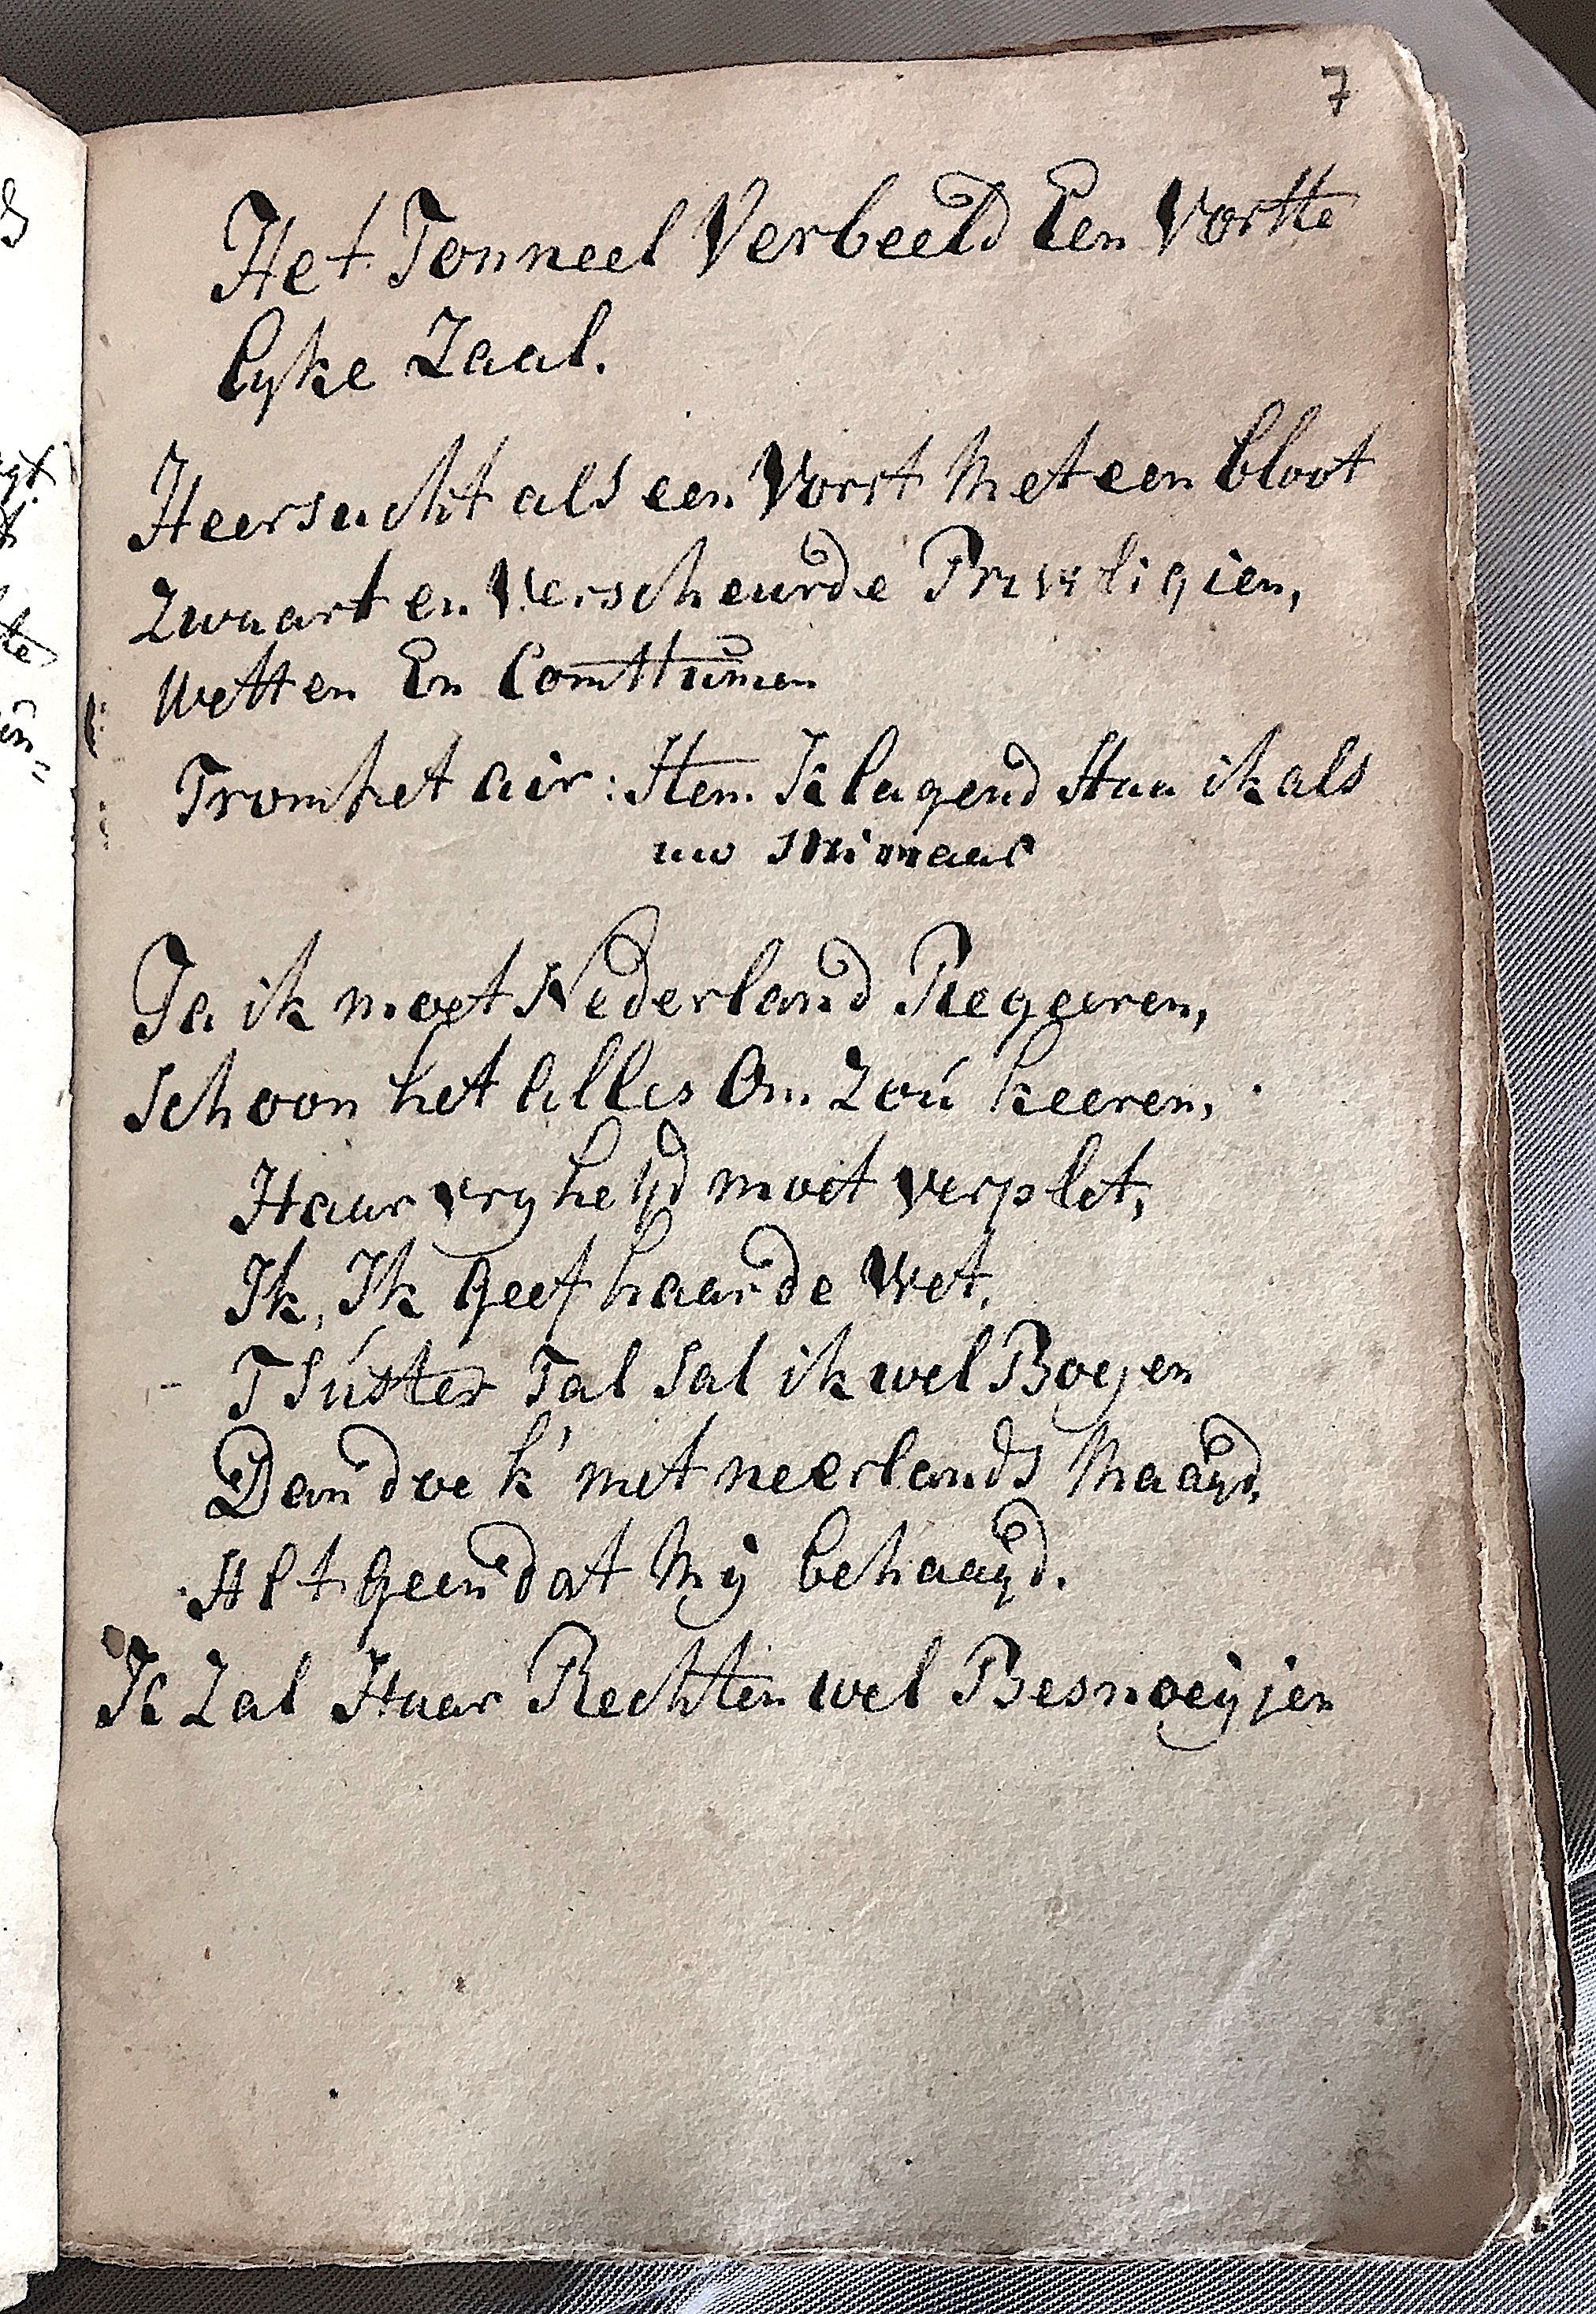 7
Het Tonneel Verbeeld Een Vortte
lyke Zaal.
Heersucht als een Vorst Met een bloot
Zwaart en Verscheurde Priviligien,
Wetten En
Trompet air: Stem Klagend Staa ik als
uw
Ja ik moet Nederland Regeeren,
schoon het alles Om Zoú keeren,
Haar vryheyd moet verplet,
Ik, Ik geef haar de Wet,
T Súster Tal Sal ik wel Boeyen
Dan doe k' met neerlands Maagd,
Al t geen dat Mij behaagd.
Ik Zal Haar Rechten wel Besnoeyjen